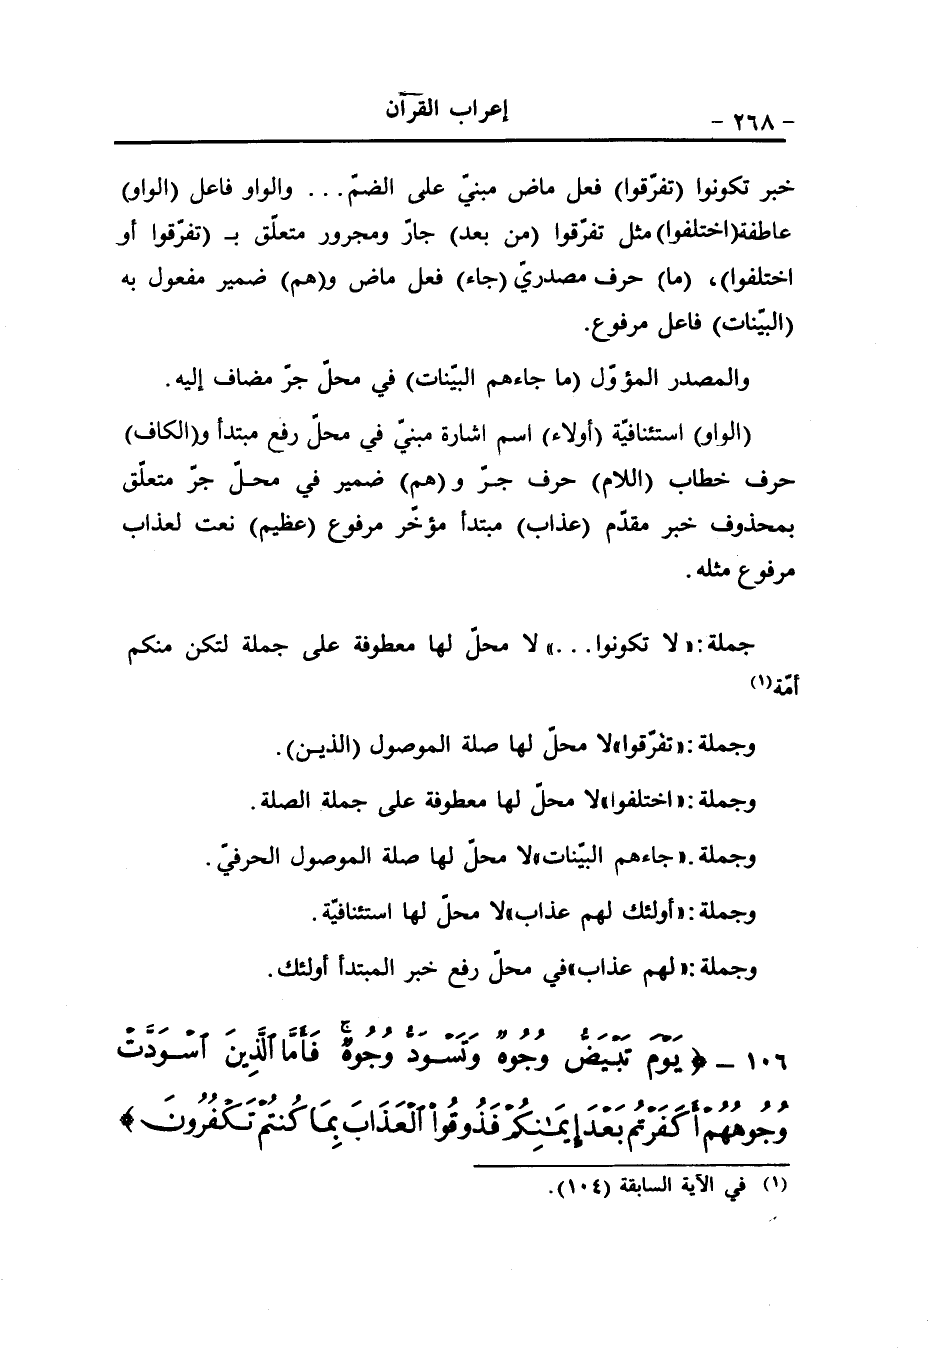 - ٢٦٨ -
إعراب القرآن
خبر تكونوا (تفرّقوا) فعل ماض مبنيّ على الضمّ... والواو فاعل (الواو)
عاطفة(اختلفوا) مثل تفرّقوا (من بعد) جارّ ومجرور متعلّق بـ (تفرّقوا أو
اختلفوا)، (ما) حرف مصدريّ (جاء) فعل ماض و(هم) ضمير مفعول به
(البيّنات) فاعل مرفوع.
والمصدر المؤوّل (ما جاءهم البيّنات) في محلّ جرّ مضاف إليه.
(الواو) استئنافيّة (أولاء) اسم اشارة مبنيّ في محلّ رفع مبتدأ و(الكاف)
حرف خطاب (اللام) حرف جـرّ و (هم) ضمير في محـلّ جرّ متعلّق
بمحذوف خبر مقدّم (عذاب) مبتدأ مؤخّر مرفوع (عظيم) نعت لعذاب
مرفوع مثله.
جملة: «لا تكونوا...» لا محلّ لها معطوفة على جملة لتكن منكم
أمّة(١)
وجملة: «تفرّقوا» لا محلّ لها صلة الموصول (الذيـن).
وجملة: «اختلفوا» لا محلّ لها معطوفة على جملة الصلة.
وجملة. «جاءهم البيّنات» لا محلّ لها صلة الموصول الحرفيّ.
وجملة: «أولئك لهم عذاب» لا محلّ لها استئنافيّة.
وجملة: «لهم عذاب» في محلّ رفع خبر المبتدأ أولئك.
١٠٦ - ﴿ يَوْمَ تَبْيَضُّ وُجُوهٌ وَتَسْوَدُّ وُجُوهٌ ۚ فَأَمَّا ٱلَّذِينَ ٱسْوَدَّتْ
وُجُوهُهُمْ أَكَفَرْتُم بَعْدَ إِيمَٰنِكُمْ فَذُوقُوا۟ ٱلْعَذَابَ بِمَا كُنتُمْ تَكْفُرُونَ ﴾
(١) في الآية السابقة (١٠٤).